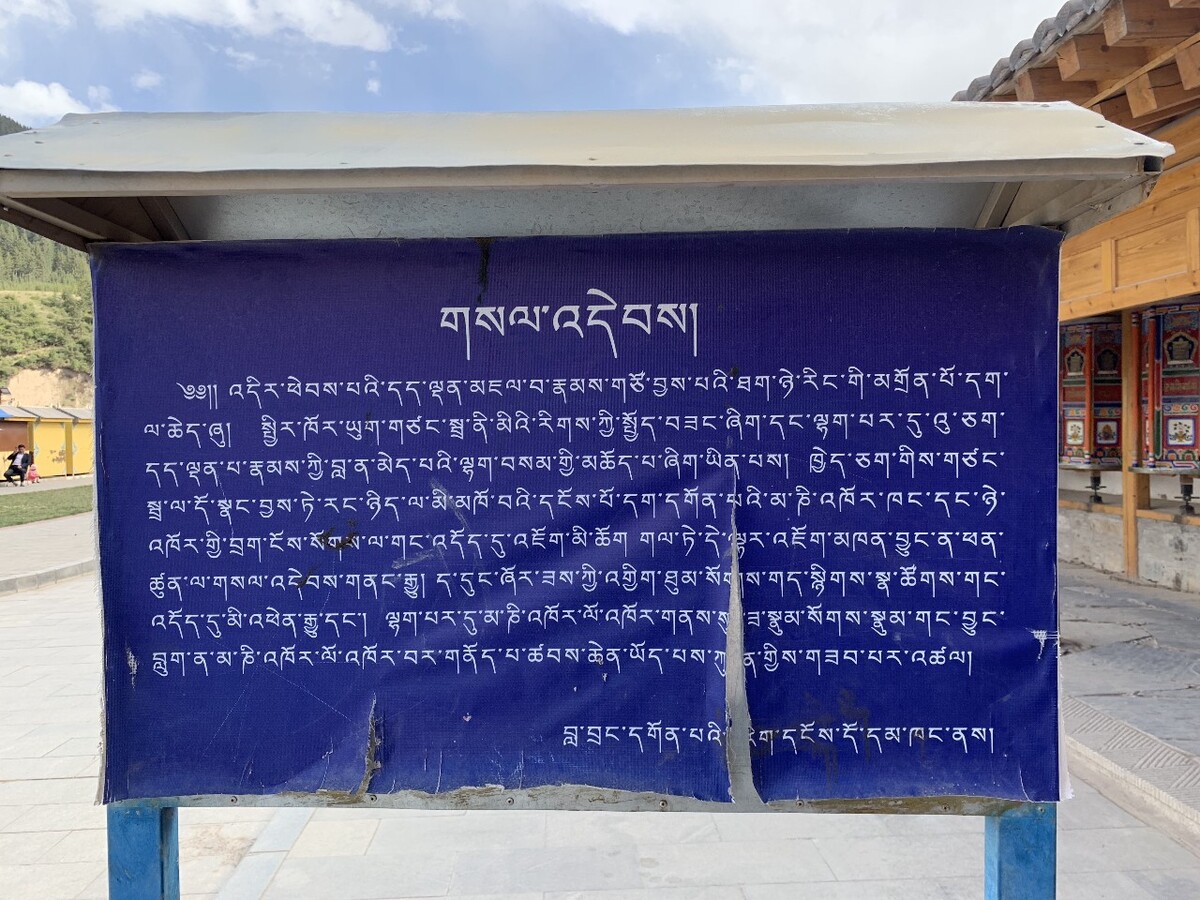 གསལ་འདེབས།
༄༅།། འདིར་ཕེབས་པའི་དད་ལྡན་མཇལ་བ་རྣམས་གཙོ་བྱས་པའི་ཐག་ཉེ་རིང་གི་མགྲོན་པོ་དག་
ལ་ཆེད་ཞུ། སྤྱིར་ཁོར་ཡུག་གཙང་སྦྲ་ནི་མིའི་རིགས་ཀྱི་སྤྱོད་བཟང་ཞིག་དང་ལྷག་པར་དུ་འུ་ཅག་
དད་ལྡན་པ་རྣམས་ཀྱི་བླ་ན་མེད་པའི་ལྷག་བསམ་གྱི་མཆོད་པ་ཞིག་ཡིན་པས། ཁྱེད་ཅག་གིས་གཙང་
སྦྲ་ལ་དོ་སྣང་བྱས་ཏེ་རང་ཉིད་ལ་མི་མཁོ་བའི་དངོས་པོ་དག་དགོན་པའི་མ་ཎི་འཁོར་ཁང་དང་ཉེ་
འཁོར་གྱི་བྲག་ངོས་སོགས་ལ་གང་འདོད་དུ་འཇོག་མི་ཆོག གལ་ཏེ་དེ་ལྟར་འཇོག་མཁན་བྱུང་ན་ཕན་
ཚུན་ལ་གསལ་འདེབས་གནང་རྒྱུ། ད་དུང་ཞོར་ཟས་ཀྱི་འགྱིག་ཐུམ་སོགས་གད་སྙིགས་སྣ་ཚོགས་གང་
འདོད་དུ་མི་འཕེན་རྒྱུ་དང་། ལྷག་པར་དུ་མ་ཎི་འཁོར་ལོ་འཁོར་གནས་སུ་ཟ་སྣུམ་སོགས་སྣུམ་གང་བྱུང་
བླུག་ན་མ་ཎི་འཁོར་ལོ་འཁོར་བར་གནོད་པ་ཚབས་ཆེན་ཡོད་པས་ཀུན་གྱིས་གཟབ་པར་འཚལ།
བླ་བྲང་དགོན་པའི་རིག་དངོས་དོ་དམ་ཁང་ནས།